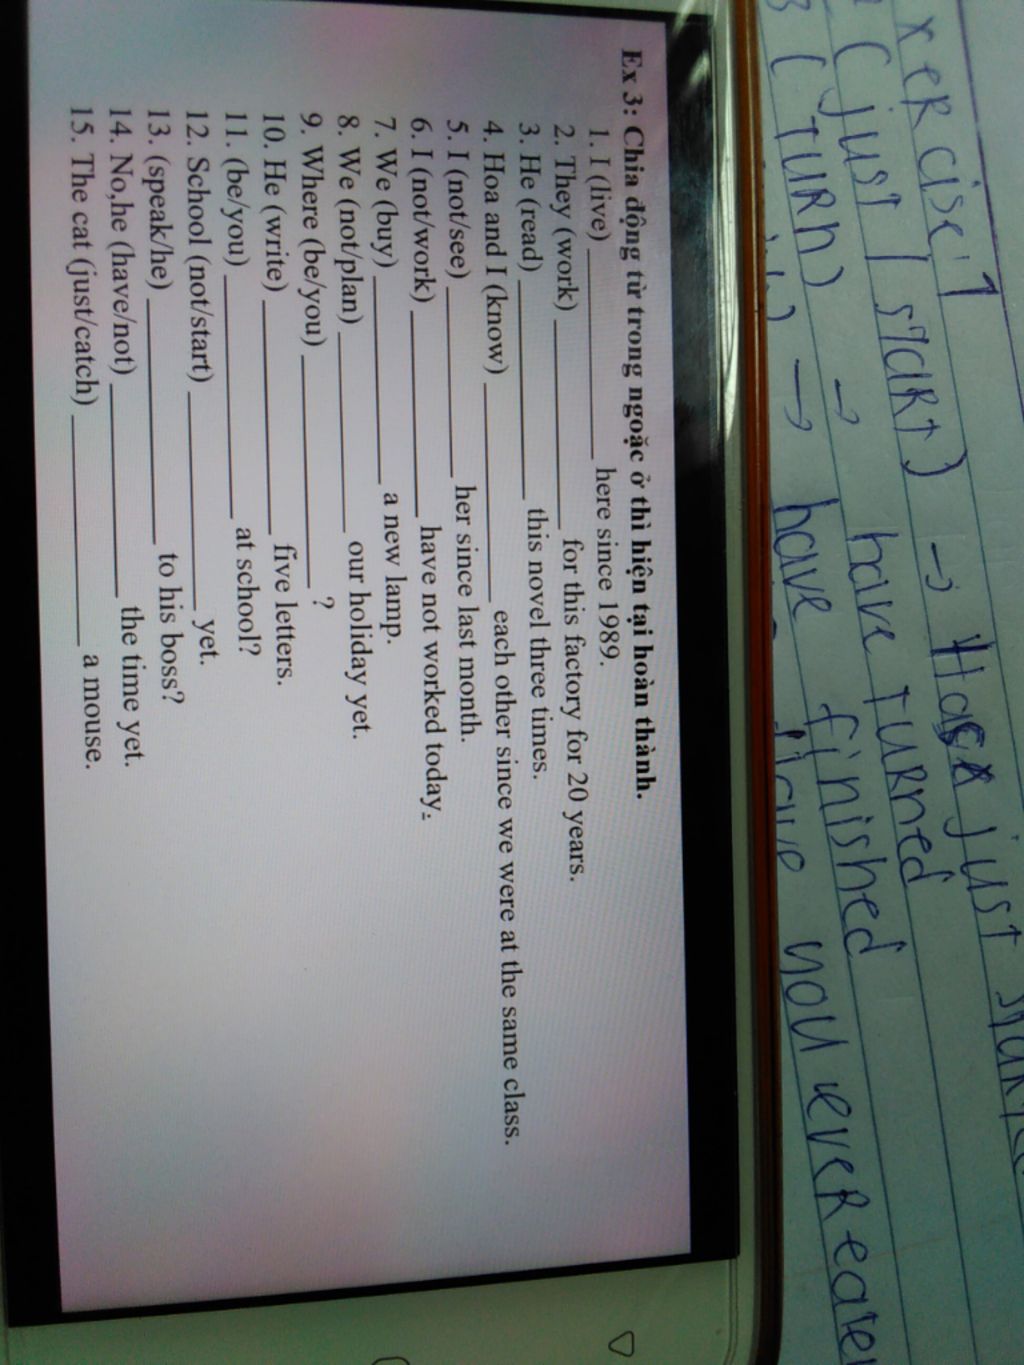 xercise 1
(just / start) → Hasx just
3 (turn) → have turned
→ have finished
you ever eaten
Ex 3: Chia động từ trong ngoặc ở thì hiện tại hoàn thành.
1. I (live) ____________ here since 1989.
2. They (work) ____________ for this factory for 20 years.
3. He (read) ____________ this novel three times.
4. Hoa and I (know) ____________ each other since we were at the same class.
5. I (not/see) ____________ her since last month.
6. I (not/work) ____________ have not worked today.
7. We (buy) ____________ a new lamp.
8. We (not/plan) ____________ our holiday yet.
9. Where (be/you) ____________ ?
10. He (write) ____________ five letters.
11. (be/you) ____________ at school?
12. School (not/start) ____________ yet.
13. (speak/he) ____________ to his boss?
14. No,he (have/not) ____________ the time yet.
15. The cat (just/catch) ____________ a mouse.